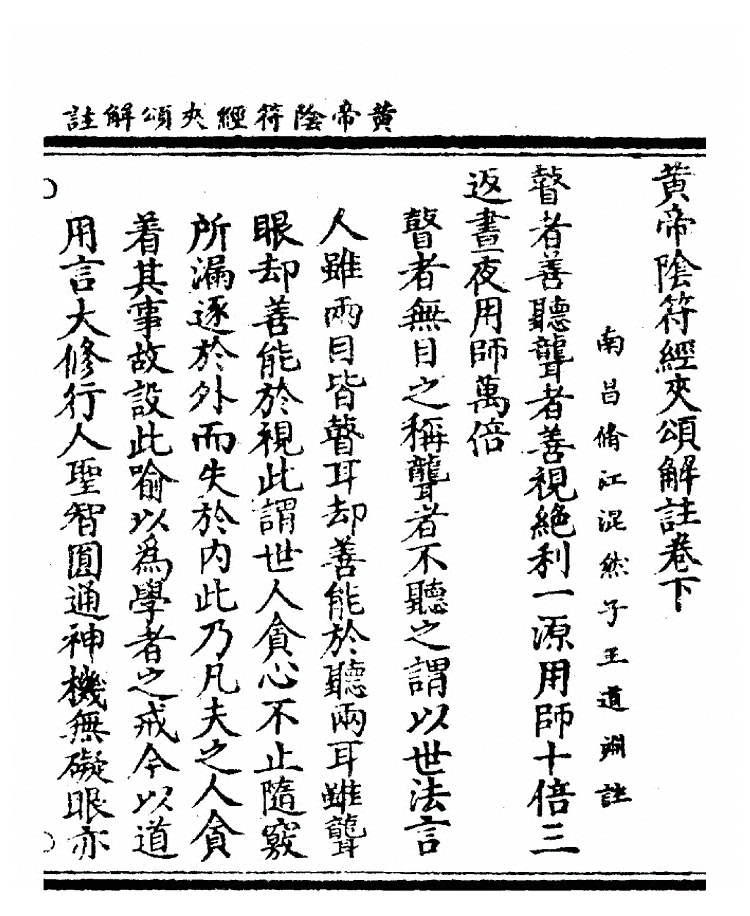 黃帝陰符經夾頌解註
黃帝陰符經夾頌解註卷下
南昌脩江混然子王道淵註
瞽者善聽聾者善視絶利一源用師十倍三
返晝夜用師萬倍
瞽者無目之稱聾者不聽之謂以世法言
人雖兩目皆瞽耳却善能於聽兩耳雖聾
眼却善能於視此謂世人貪心不止隨竅
所漏逐於外而失於内此乃凡夫之人貪
着其事故設此喻以為學者之戒今以道
用言大修行人聖智圓通神機無礙眼亦